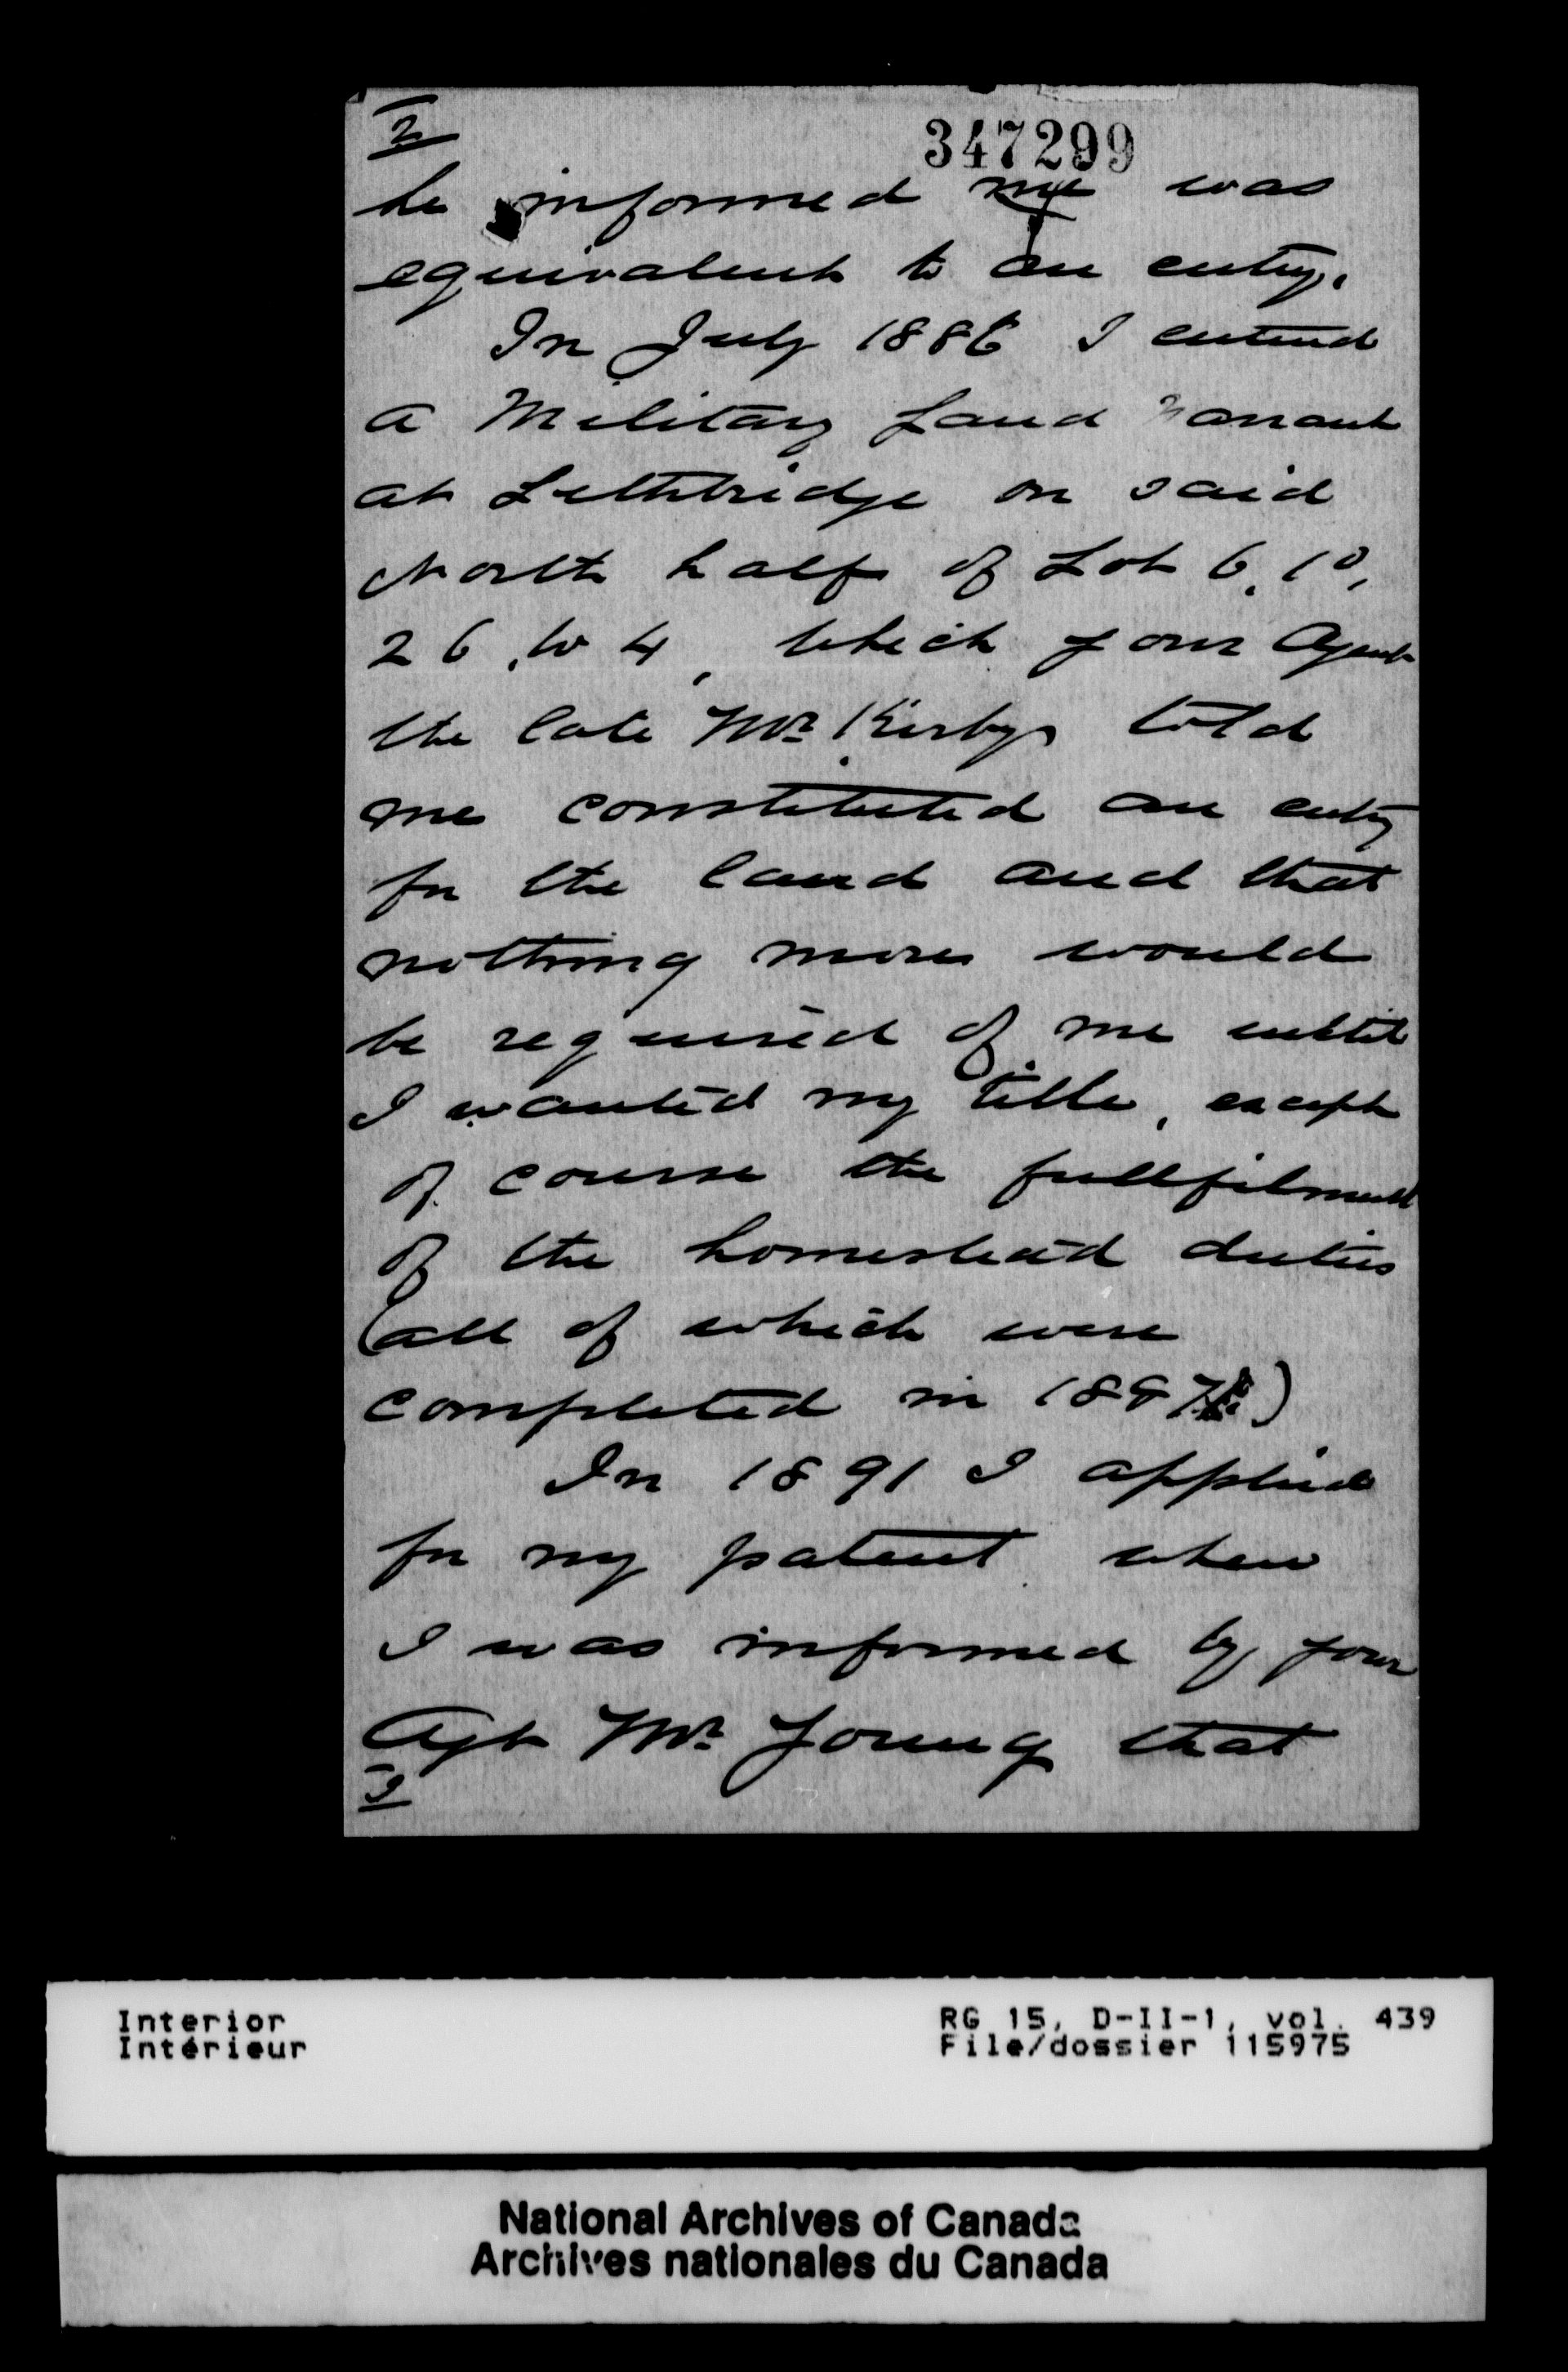 2
347299
he informed me was
equivalent to an entry.
In July 1886 I entered
a Military Land Warrant
at Lethbridge on said
North half of Lot 6, 10,
26, W 4, which your Agent
the late Mr Kirby told
me constituted an entry
for the land and that
nothing more would
be required of me until
I wanted my title, except
of course the fullfilment
of the homestead duties
(all of which were
completed in 1887)
In 1891 I applied
for my patent when
I was informed by your
Agt Mr Young that
Interior
Intérieur
RG 15, D-II-1, vol. 439
File/dossier 115975
National Archives of Canada
Archives nationales du Canada